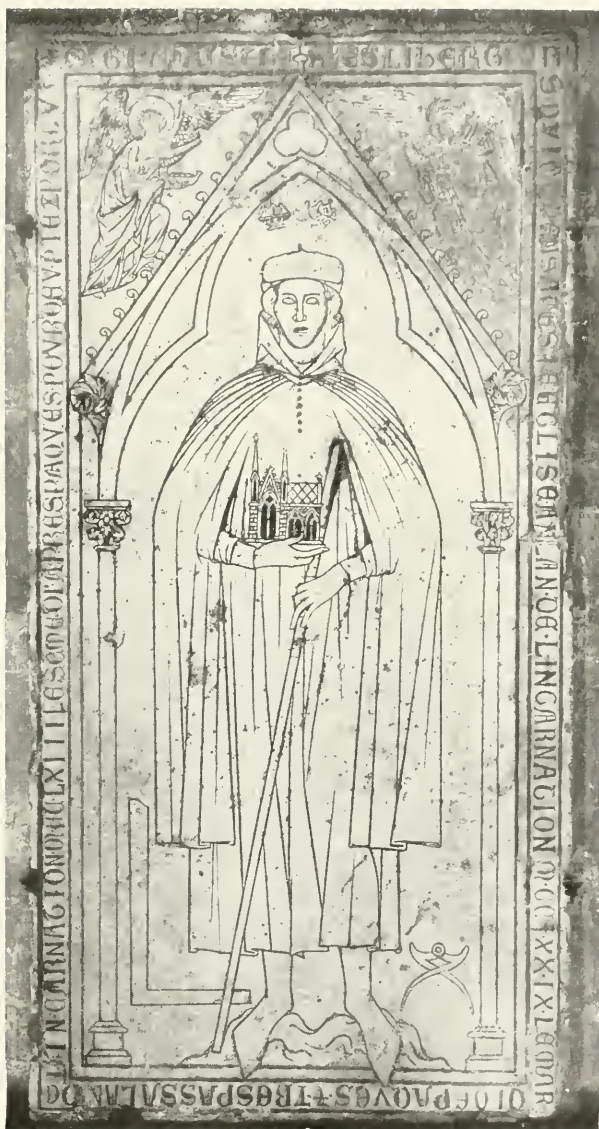 GIST HVES LIBERGIERS
CESTE EGLISE AN LAN DE LINCARNATION MCC XXIX LE MAR
DI DE PAQVES + TRESPASSA LAN DE
LINCARNATION MCCLXIII LE SEMEDI APRES PAQVES POVR DEV PIEZ POR LVI